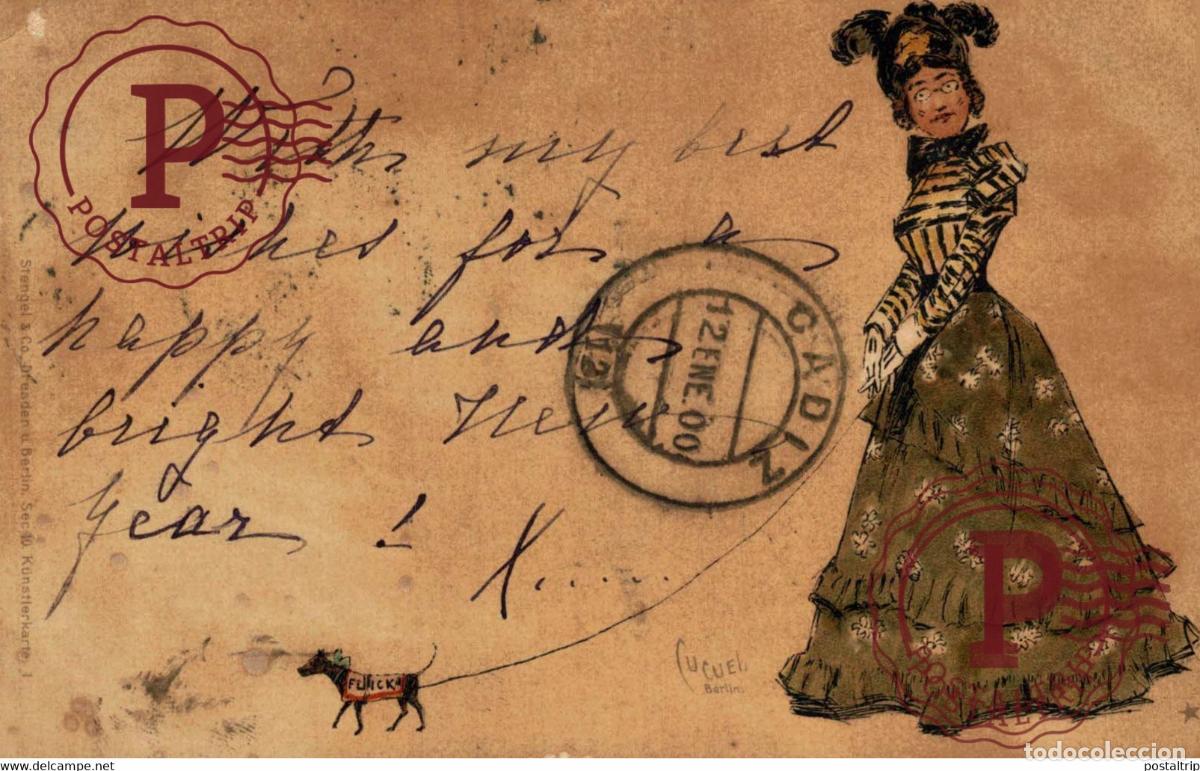 P
POSTALTRIP
With my best
wishes for a
happy and
bright New
Year !
X.....
CADIZ
12 ENE 00
(12)
Stengel & Co. Dresden u. Berlin. Ser. 10 Künstlerkarte. 1
CUCUEL
Berlin.
P
POSTALTRIP
todocoleccion
www.todocoleccion.net
postaltrip